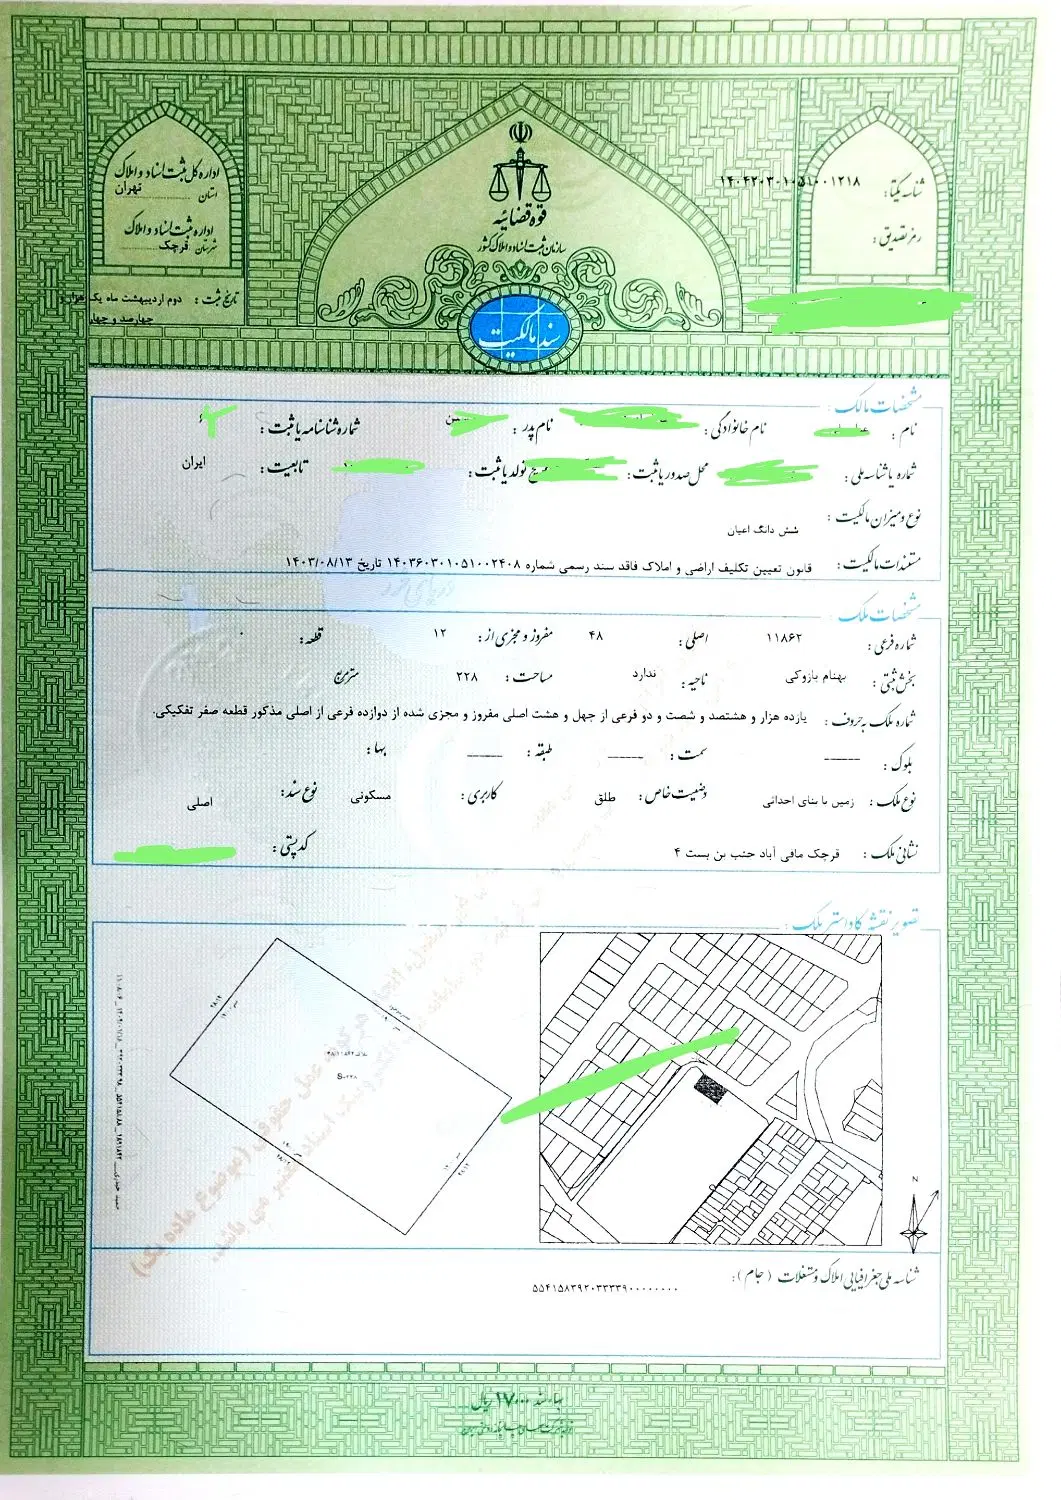 شناسه یکتا: ۱۴۰۴۲۰۳۰۱۰۵۱۰۰۱۲۱۸
رمز تصدیق:
قوه قضائیه
سازمان ثبت اسناد و املاک کشور
سند مالکیت
اداره کل ثبت اسناد و املاک
استان تهران
اداره ثبت اسناد و املاک
شهرستان قرچک
تاریخ ثبت: دوم اردیبهشت ماه یک هزار و
چهارصد و چهار
مشخصات مالک:
نام: نام خانوادگی: نام پدر: شماره شناسنامه یا ثبت:
شماره یا شناسه ملی: محل صدور یا ثبت: تولد یا ثبت: تابعیت: ایران
نوع و میزان مالکیت: شش دانگ اعیان
مستندات مالکیت: قانون تعیین تکلیف اراضی و املاک فاقد سند رسمی شماره ۱۴۰۳۶۰۳۰۱۰۵۱۰۰۲۴۰۸ تاریخ ۱۴۰۳/۰۸/۱۳
مشخصات ملک:
شماره فرعی: ۱۱۸۶۲ اصلی: ۴۸ مفروز و مجزی از: ۱۲ قطعه: ۰
بخش ثبتی: بهنام پازوکی ناحیه: ندارد مساحت: ۲۲۸ متر مربع
شماره ملک به حروف: یازده هزار و هشتصد و شصت و دو فرعی از چهل و هشت اصلی مفروز و مجزی شده از دوازده فرعی از اصلی مذکور قطعه صفر تفکیکی.
بلوک: ــــــ سمت: ــــــ طبقه: ــــــ بها:
نوع ملک: زمین با بنای احداثی وضعیت خاص: طلق کاربری: مسکونی نوع سند: اصلی
نشانی ملک: قرچک مافی آباد جنب بن بست ۴ کد پستی:
تصویر نقشه کاداستر ملک:
N
شناسه ملی جغرافیایی املاک و مستغلات (جام): ۵۵۴۱۵۸۳۹۲۰۳۳۳۳۹۰۰۰۰۰۰۰۰۰
بهاء سند ۱۷۰۰۰۰ ریال